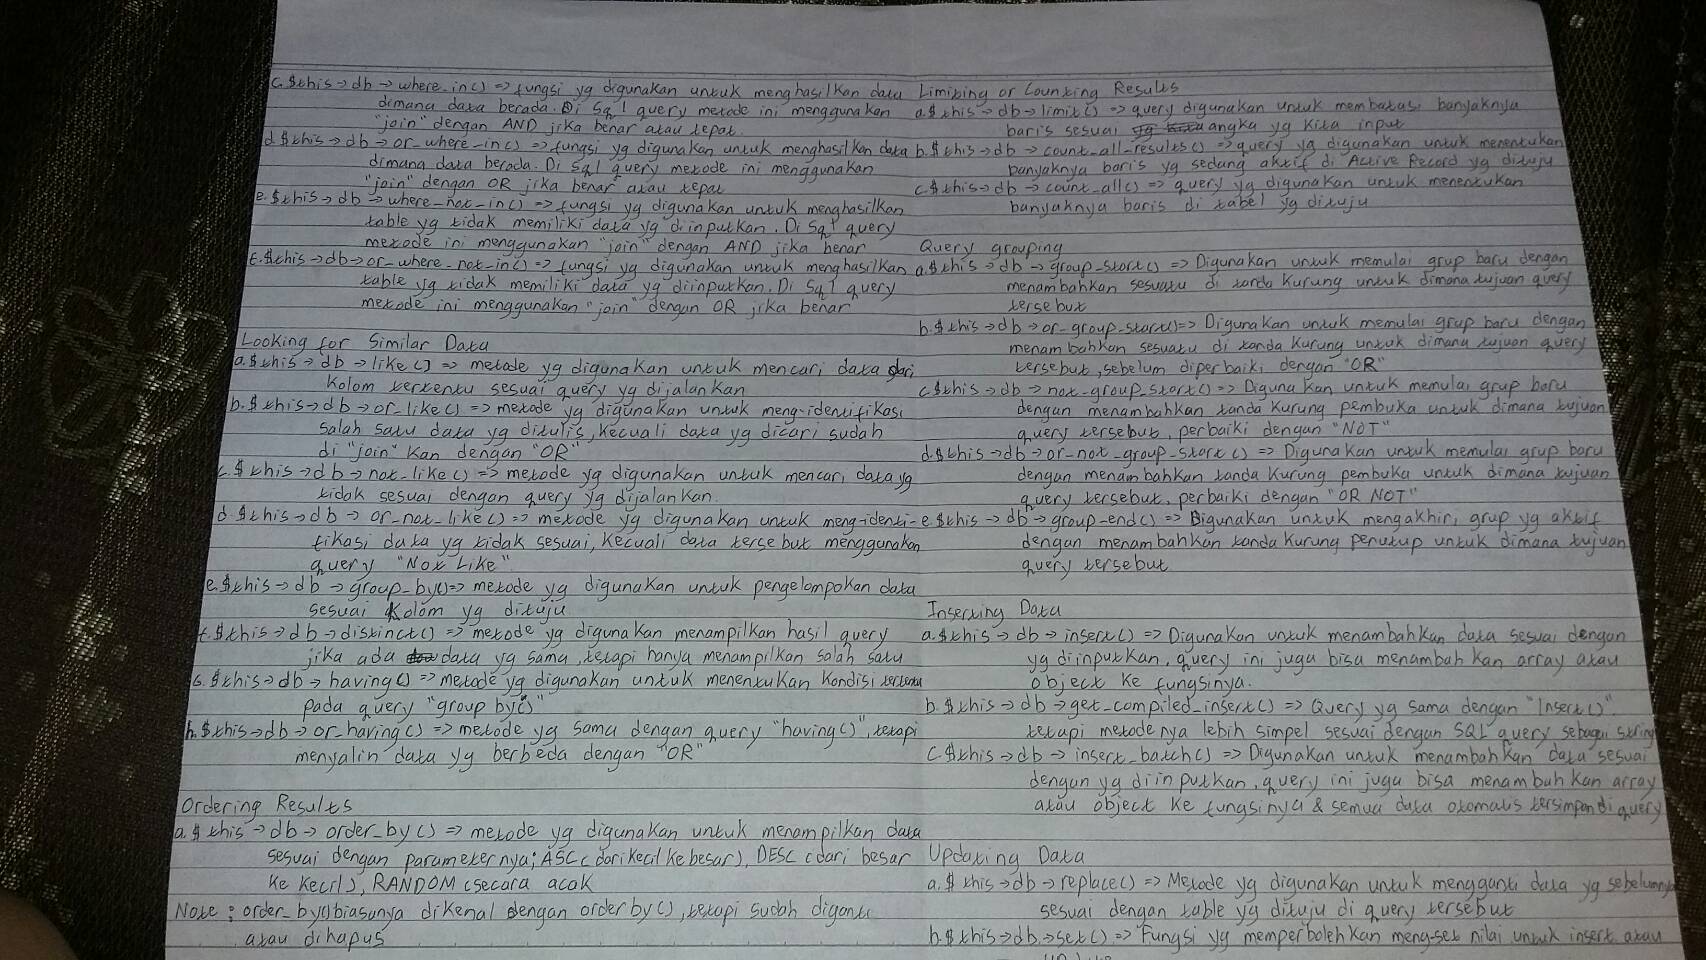 c. $this->db->where_in() => fungsi yg digunakan untuk menghasilkan data
dimana data berada. Di Sql query metode ini menggunakan
"join" dengan AND jika benar atau tepat.
d. $this->db->or_where_in() => fungsi yg digunakan untuk menghasilkan data
dimana data berada. Di Sql query metode ini menggunakan
"join" dengan OR jika benar atau tepat
e. $this->db->where_not_in() => fungsi yg digunakan untuk menghasilkan
table yg tidak memiliki data yg diinputkan. Di Sql query
metode ini menggunakan "join" dengan AND jika benar
f. $this->db->or_where_not_in() => fungsi yg digunakan untuk menghasilkan
table yg tidak memiliki data yg diinputkan. Di Sql query
metode ini menggunakan "join" dengan OR jika benar
Looking for Similar Data
a. $this->db->like() => metode yg digunakan untuk mencari data dari
kolom tertentu sesuai query yg dijalankan
b. $this->db->or_like() => metode yg digunakan untuk meng-identifikasi
salah satu data yg ditulis, kecuali data yg dicari sudah
di "join" kan dengan "OR"
c. $this->db->not_like() => metode yg digunakan untuk mencari data yg
tidak sesuai dengan query yg dijalankan.
d. $this->db->or_not_like() => metode yg digunakan untuk meng-identi-
fikasi data yg tidak sesuai, kecuali data tersebut menggunakan
query "Not Like".
e. $this->db->group_by() => metode yg digunakan untuk pengelompokan data
sesuai kolom yg dituju
f. $this->db->distinct() => metode yg digunakan menampilkan hasil query
jika ada data yg sama, tetapi hanya menampilkan salah satu
G. $this->db->having() => metode yg digunakan untuk menentukan kondisi tertentu
pada query "group by()"
h. $this->db->or_having() => metode yg sama dengan query "having()", tetapi
menyalin data yg berbeda dengan "OR"
Ordering Results
a. $this->db->order_by() => metode yg digunakan untuk menampilkan data
sesuai dengan parameternya; ASC (dari kecil ke besar), DESC (dari besar
ke kecil), RANDOM (secara acak
Note : order_by() biasanya dikenal dengan orderby(), tetapi sudah diganti
atau dihapus
Limiting or Counting Results
a. $this->db->limit() => query digunakan untuk membatasi banyaknya
baris sesuai angka yg kita input
b. $this->db->count_all_results() => query yg digunakan untuk menentukan
banyaknya baris yg sedang aktif di Active Record yg dituju
c. $this->db->count_all() => query yg digunakan untuk menentukan
banyaknya baris di tabel yg dituju
Query grouping
a. $this->db->group_start() => Digunakan untuk memulai grup baru dengan
menambahkan sesuatu di tanda kurung untuk dimana tujuan query
tersebut
b. $this->db->or_group_start() => Digunakan untuk memulai grup baru dengan
menambahkan sesuatu di tanda kurung untuk dimana tujuan query
tersebut, sebelum diperbaiki dengan "OR"
c. $this->db->not_group_start() => Digunakan untuk memulai grup baru
dengan menambahkan tanda kurung pembuka untuk dimana tujuan
query tersebut, perbaiki dengan "NOT"
d. $this->db->or_not_group_start() => Digunakan untuk memulai grup baru
dengan menambahkan tanda kurung pembuka untuk dimana tujuan
query tersebut, perbaiki dengan "OR NOT"
e. $this->db->group_end() => Digunakan untuk mengakhiri grup yg aktif
dengan menambahkan tanda kurung penutup untuk dimana tujuan
query tersebut
Inserting Data
a. $this->db->insert() => Digunakan untuk menambahkan data sesuai dengan
yg diinputkan, query ini juga bisa menambahkan array atau
object ke fungsinya.
b. $this->db->get_compiled_insert() => Query yg sama dengan "Insert()"
tetapi metodenya lebih simpel sesuai dengan SQL query sebagai string
c. $this->db->insert_batch() => Digunakan untuk menambahkan data sesuai
dengan yg diinputkan, query ini juga bisa menambahkan array
atau object ke fungsinya & semua data otomatis tersimpan di query
Updating Data
a. $this->db->replace() => Metode yg digunakan untuk mengganti data yg sebelumnya
sesuai dengan table yg dituju di query tersebut
b. $this->db->set() => Fungsi yg memperbolehkan meng-set nilai untuk insert atau